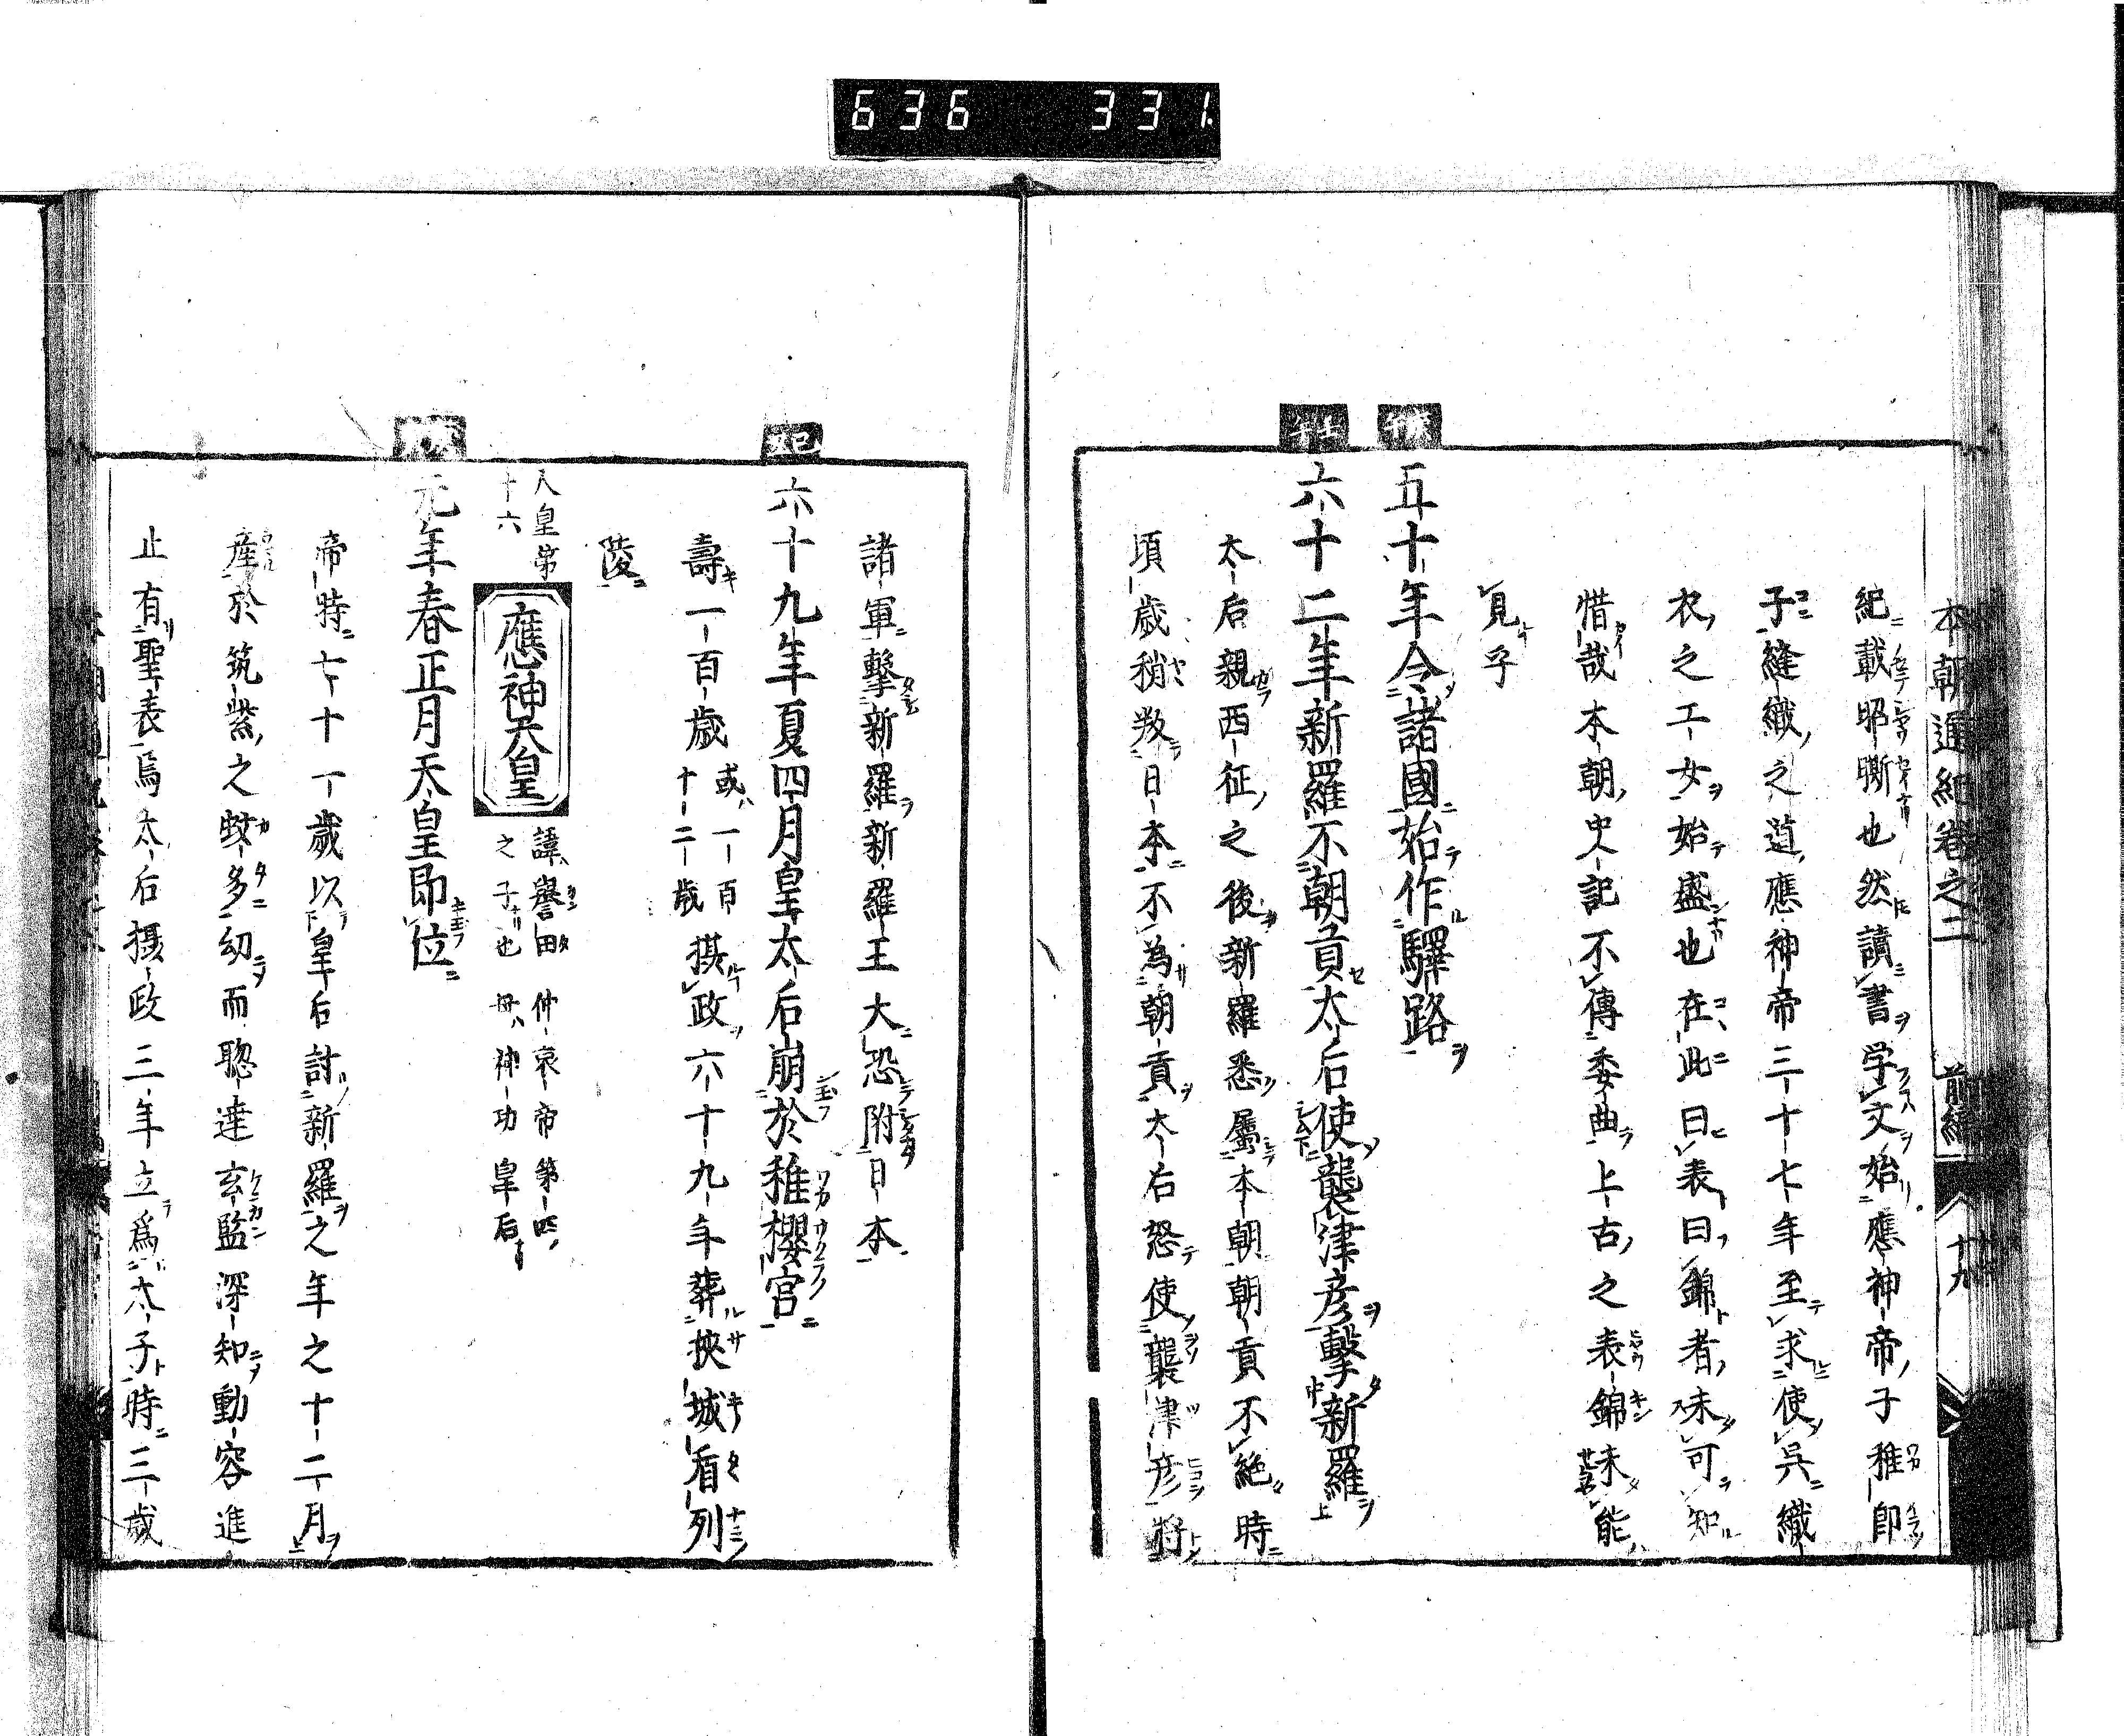 636 331.
本朝通紀卷之二 前編 十九
紀載昭晰也然讀書学文始應神帝子稚郎
子縫織之道應神帝三十七年至求使呉織
衣之工女始盛也在此曰表曰錦者未可知
惜哉本朝史記不傳委曲上古之表錦未能
見乎
庚午
五十年令諸國始作驛路
壬午
六十二年新羅不朝貢太后使襲津彦擊新羅
太后親西征之後新羅悉屬本朝朝貢不絶時
頃歳稍叛日本不為朝貢太后怒使襲津彦將
諸軍擊新羅新羅王大恐附日本
己丑
六十九年夏四月皇太后崩於稚櫻宮
壽一百歳或一百十二歳攝政六十九年葬挾城看列
陵
人皇第十六
應神天皇
諱譽田 仲哀帝第四
之子也 母神功皇后
元年春正月天皇即位
帝時七十一歲以皇后討新羅之年之十二月
産於筑紫之蚊多幼而聰達玄監深知動容進
止有聖表焉太后摄政三年立爲太子時三歲